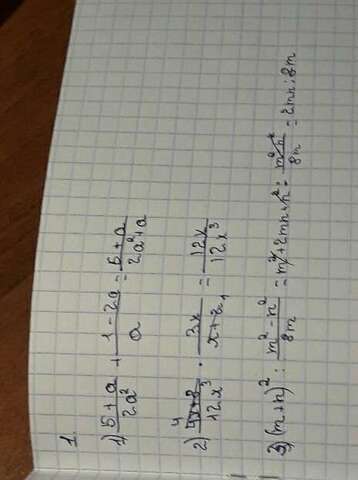 1.
1) (5+a)/(2a²) + (1-2a)/a = (5+a)/(2a²+a)
2) (4x+8)/(12x³) · 3x/(x+2) = 12x/12x³
3) (m+n)² : (m²-n²)/(8m) = m²+2mn+n² : (m²-n²)/(8m) = 2mn:8m